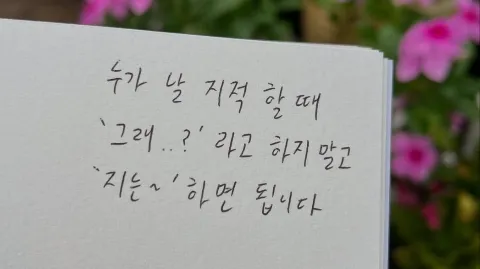 누가 날 지적 할 때
'그래..?' 라고 하지말고
'지는~' 하면 됩니다